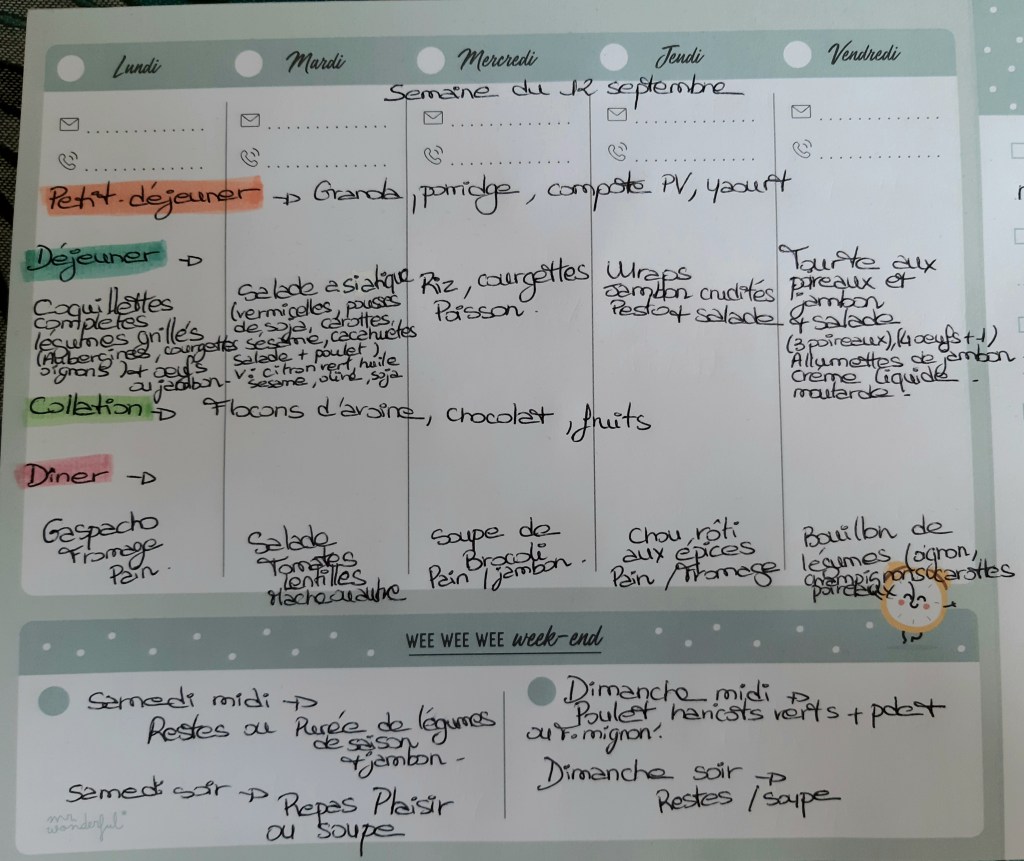 Lundi
Mardi
Mercredi
Jeudi
Vendredi
Semaine du 12 septembre
Petit-déjeuner → Granola, porridge, compote PV, yaourt
Déjeuner →
Coquillettes
complètes
légumes grillés
(Aubergines, courgettes
oignons) + oeufs
ou jambon.
Salade asiatique
(vermicelles, pousses
de soja, carottes,
sésame, cacahuètes
salade + poulet)
V: citron vert, huile
sésame, olive, soja
Riz, courgettes
Poisson.
Wraps
Jambon crudités
Pesto + salade
Tourte aux
poireaux et
jambon
+ salade
(3 poireaux), (4 oeufs + 1)
Allumettes de jambon
Crème liquide.
moutarde.
Collation → Flocons d'avoine, chocolat, fruits
Diner →
Gaspacho
Fromage
Pain.
Salade
Tomates
lentilles
Mache ou autre
Soupe de
Brocoli
Pain / jambon.
Chou rôti
aux épices
Pain / Fromage
Bouillon de
légumes (oignon,
champignons, carottes
poireaux
WEE WEE WEE week-end
Samedi midi →
Restes ou Purée de légumes
de saison
+ jambon -
Samedi soir → Repas Plaisir
ou soupe
Dimanche midi →
Poulet haricots verts + pdet
ou F. mignon.
Dimanche soir →
Restes / soupe
mr
wonderful*